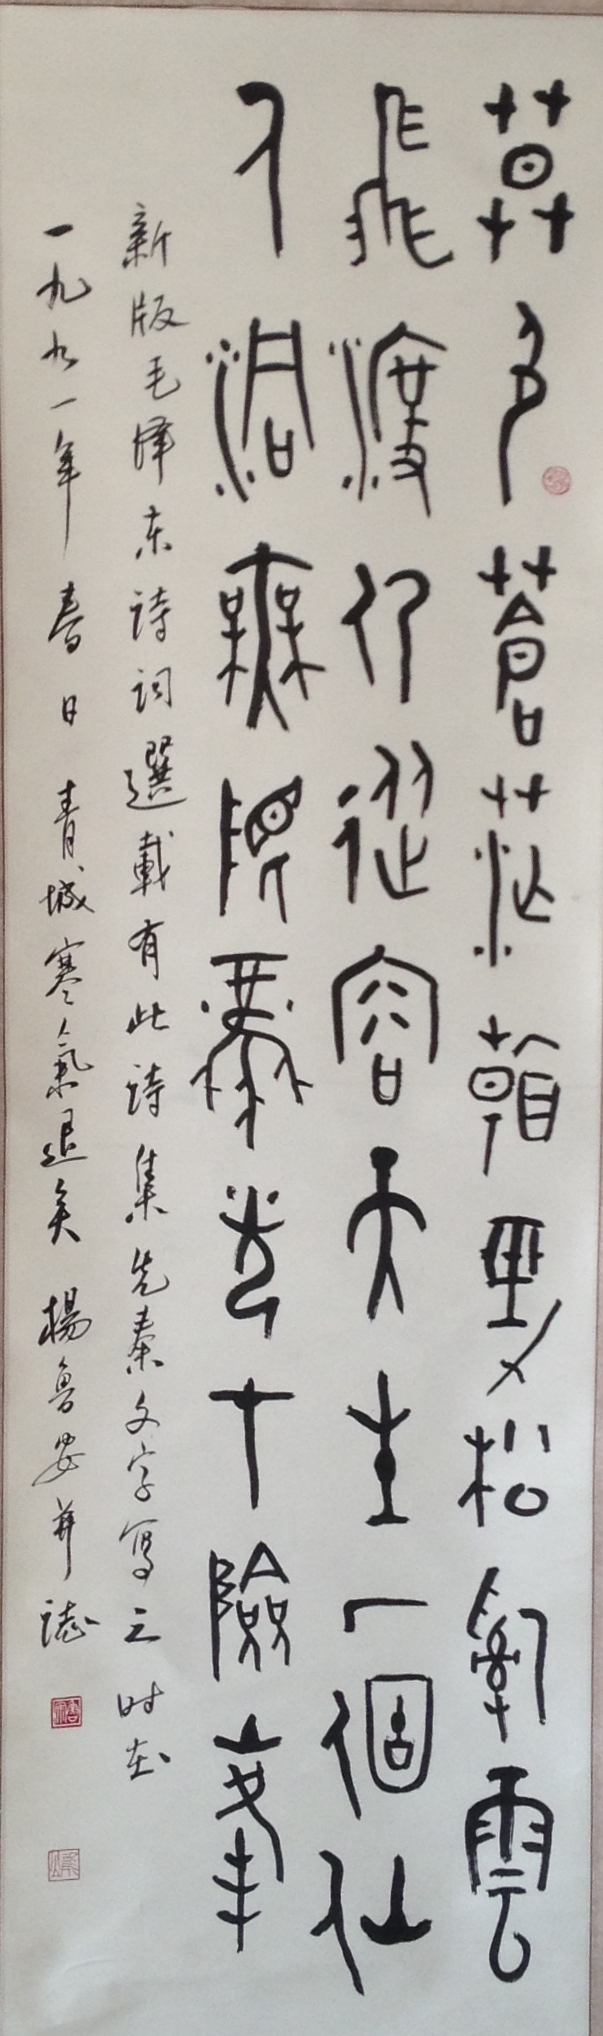 暮色蒼茫看勁松亂雲
飛渡仍從容天生一個仙
人洞無限風光在險峰
新版毛泽东诗词選載有此诗集先秦文字寫之时在
一九九一年春日青城寒氣退矣楊鲁安并誌